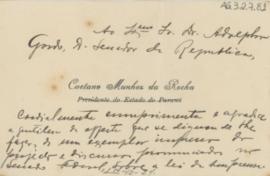 AG.3.2.7.83
Ao Exmo Sr. Dr. Adolpho
Gordo, D. Senador da Republica,
Caetano Munhoz da Rocha
Presidente do Estado do Paraná
Cordialmente cumprimenta e agradece
a gentileza da offerta que se dignou de lhe
fazer, de um exemplar impresso do
projecto e discurso pronunciado no
Senado sobre a lei da imprensa